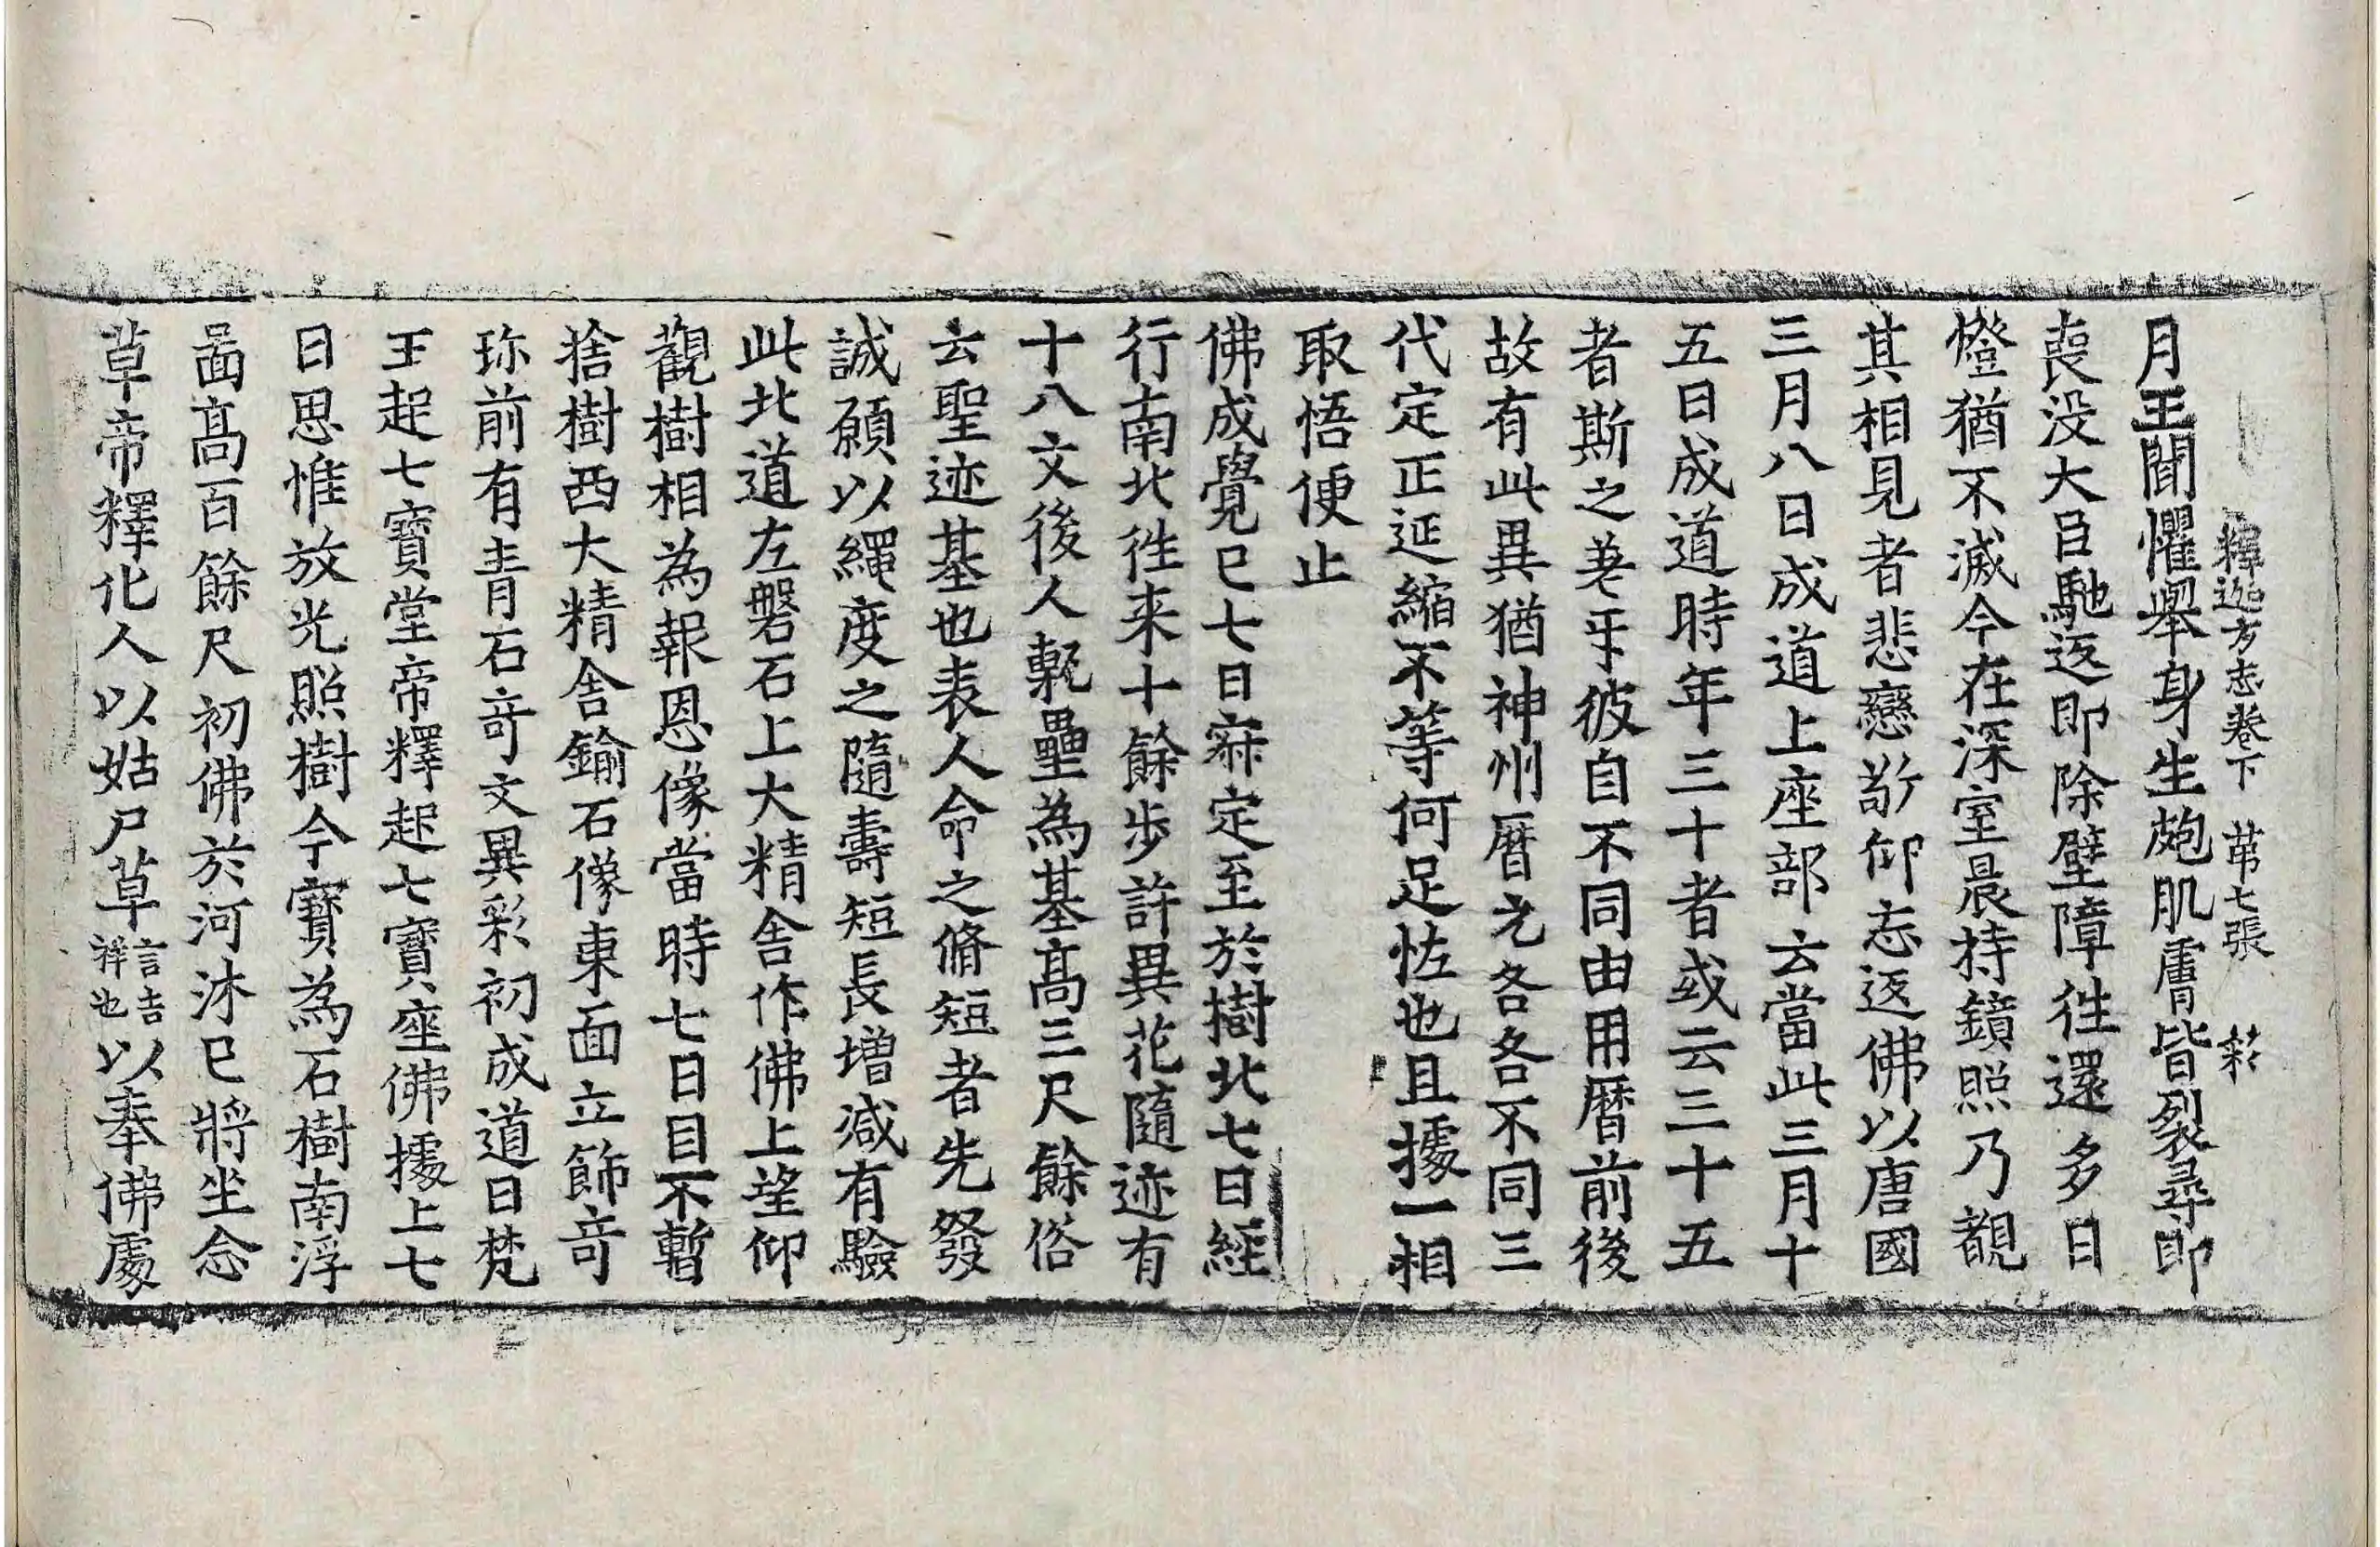 釋迦方志卷下 苐七張 綵
月王聞懼舉身生皰肌膚皆裂尋即
喪没大臣馳返即除壁障往還多日
燈猶不滅今在深室晨持鏡照乃覩
其相見者悲戀敬仰忘返佛以唐國
三月八日成道上座部云當此三月十
五日成道時年三十者或云三十五
者斯之差乎彼自不同由用曆前後
故有此異猶神州曆元各各不同三
代定正延縮不等何足怪也且據一相
取悟便止
佛成覺已七日寂定至於樹北七日經
行南北往来十餘步許異花隨迹有
十八文後人甎壘為基高三尺餘俗
云聖迹基也表人命之脩短者先發
誠願以繩度之隨壽短長增減有驗
此北道左磐石上大精舍作佛上望仰
觀樹相為報恩像當時七日目不暫
捨樹西大精舍鍮石像東面立飾奇
珎前有青石奇文異彩初成道日梵
王起七寶堂帝釋起七寶座佛據上七
日思惟放光照樹今寶為石樹南浮
啚高百餘尺初佛於河沐已將坐念
草帝釋化人以姑尸草言吉祥也以奉佛處